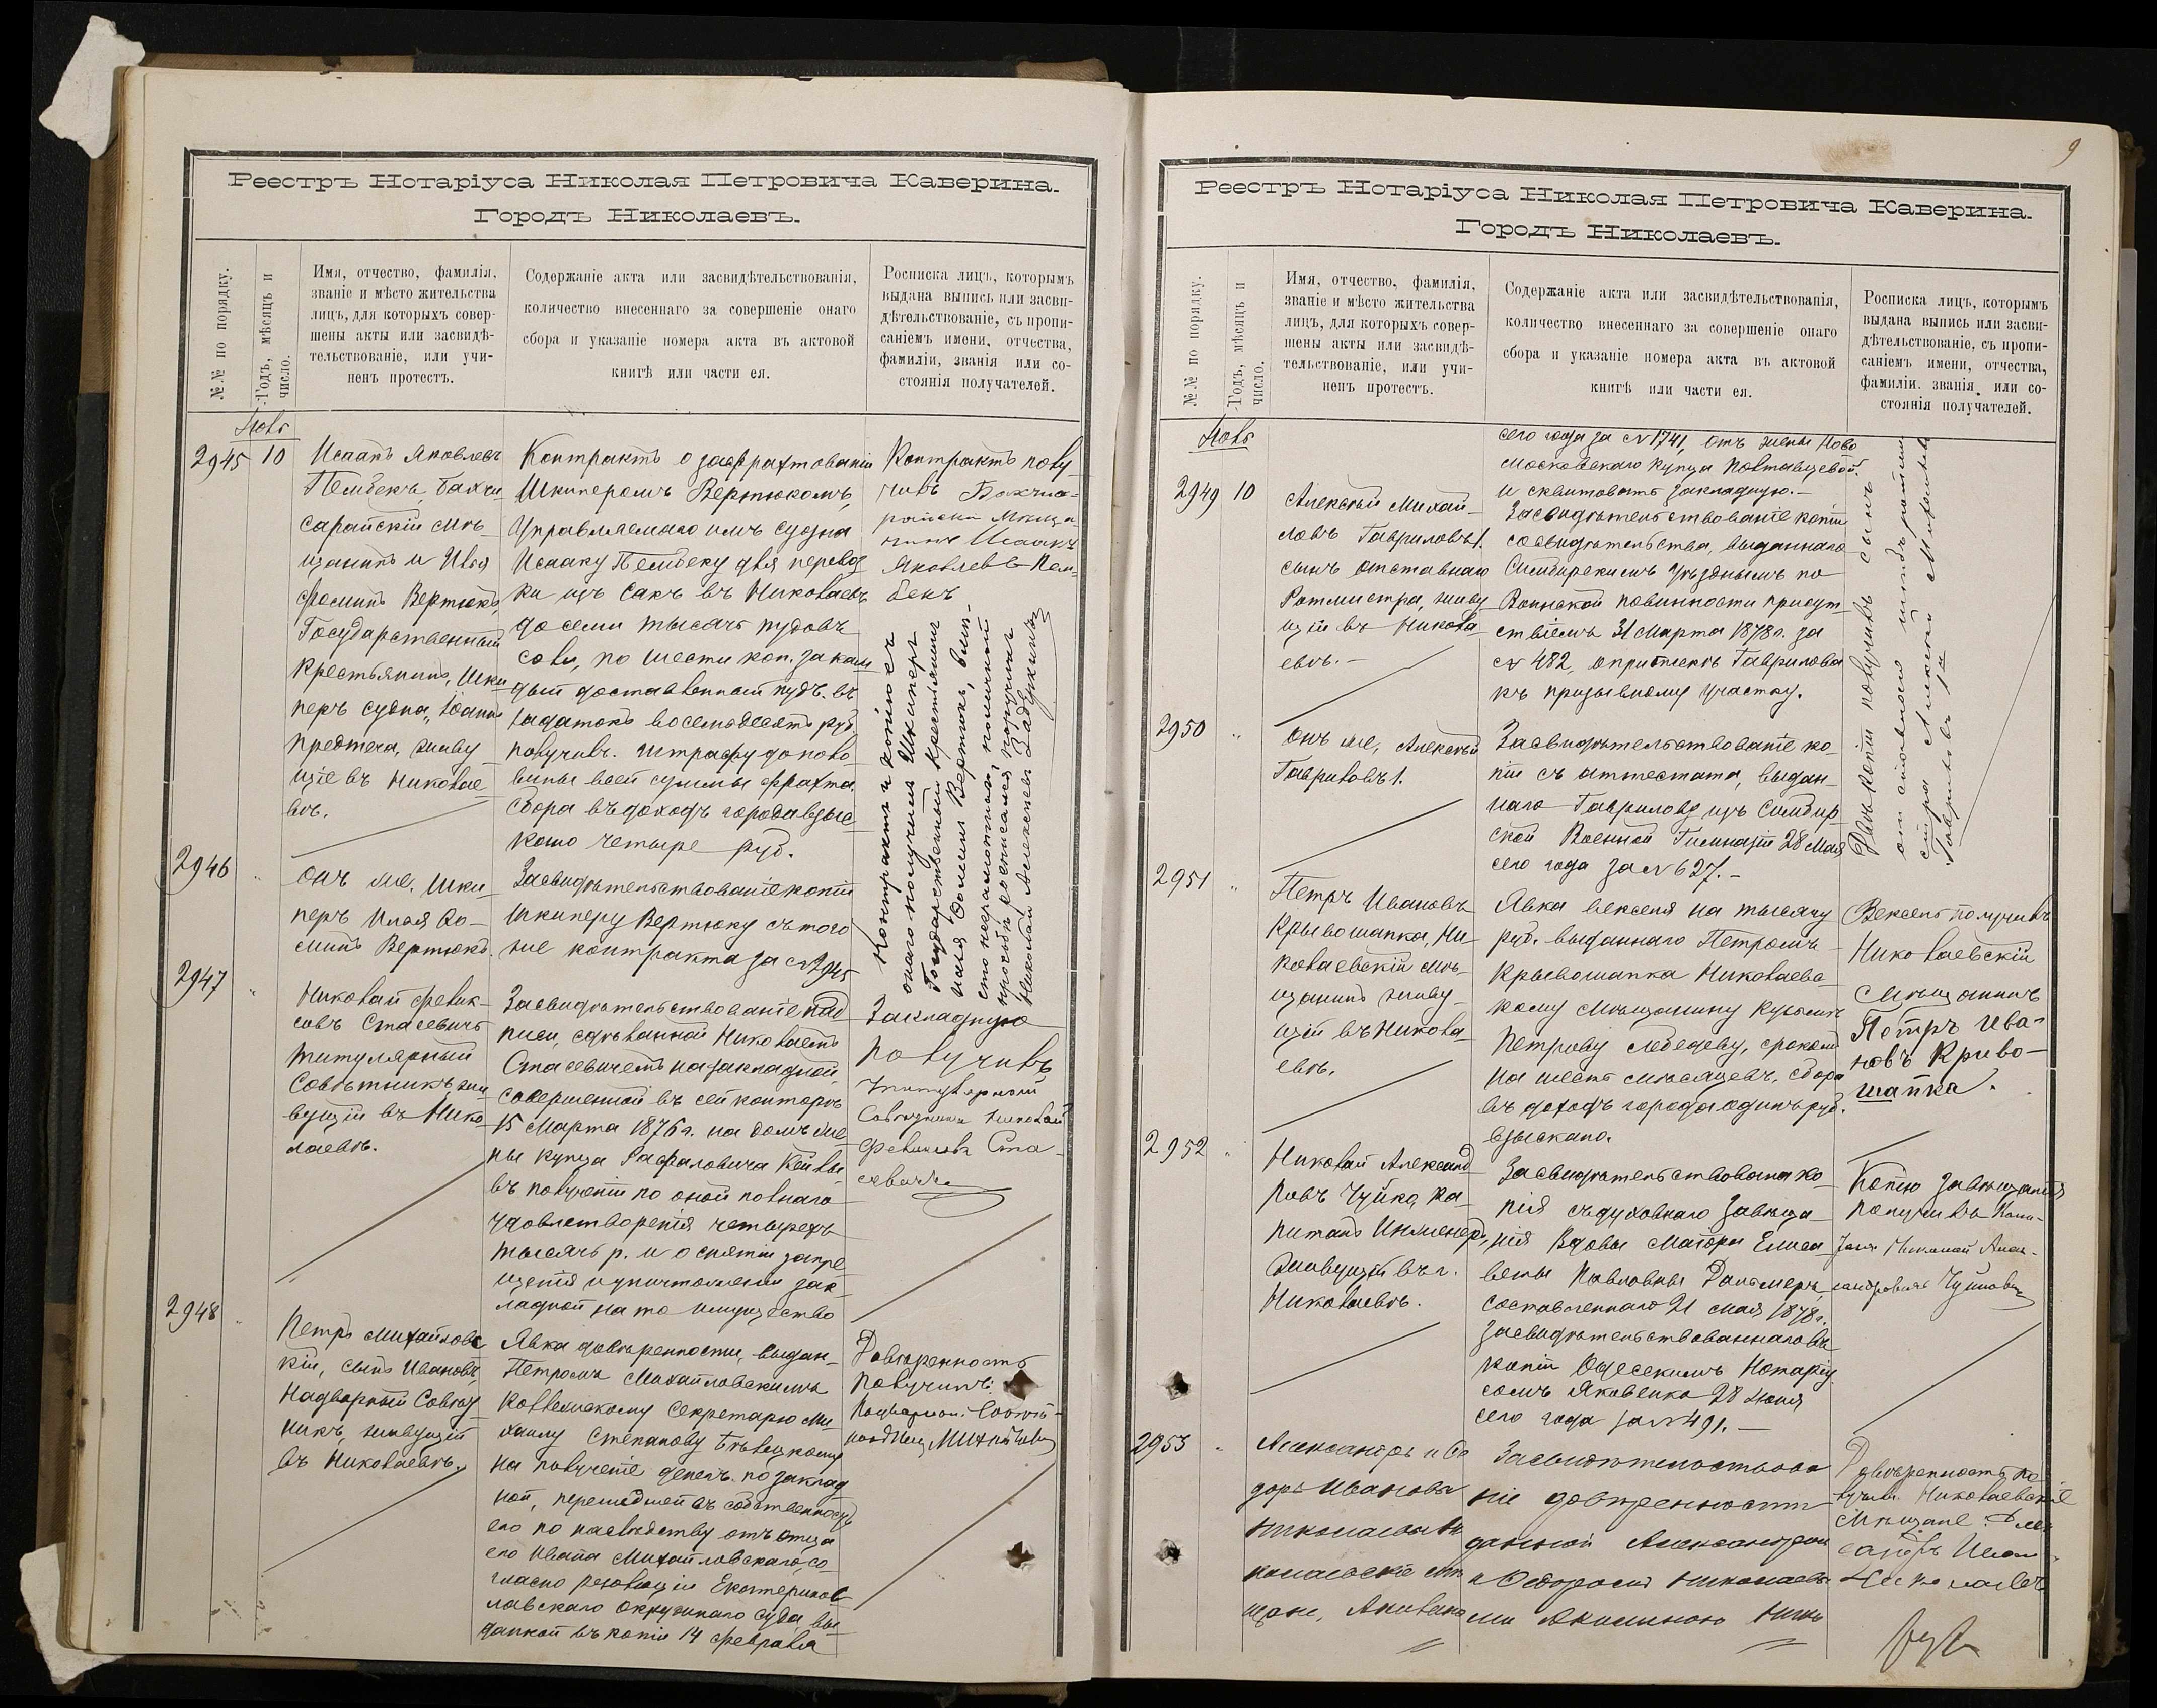 Реестръ Нотаріуса Николая Петровича Каверина.
Городъ Николаевъ.
№№ по порядку.
Годъ, мѣсяцъ и
число.
Имя, отчество, фамилія,
званіе и мѣсто жительства
лицъ, для которыхъ совер-
шены акты или засвидѣ-
тельствованіе, или учи-
ненъ протестъ.
Содержаніе акта или засвидѣтельствованія,
количество внесеннаго за совершеніе онаго
сбора и указаніе номера акта въ актовой
книгѣ или части ея.
Росписка лицъ, которымъ
выдана выпись или засви-
дѣтельствованіе, съ пропи-
саніемъ имени, отчества,
фамиліи, званія или со-
стоянія получателей.
Нояб
2945 10
Исаакъ Яковлевъ
Пембекъ, Бахчи
сарайскій мѣ-
щанинъ и Илья
Фоминъ Вертюкъ,
Государственный
крестьянинъ, Шки
перъ судна, Іоаннъ
Предтеча, живу-
щіе въ Николае
вѣ.
Контрактъ о зафрахтованіи
Шкиперомъ Вертюкомъ,
управляемаго имъ судна
Исааку Пембеку для перевоз
ки изъ Сакъ въ Николаевъ
до семи тысячъ пудовъ
соли, по шести коп. за каж
дый доставленный пудъ. въ
задатокъ восемьдесятъ руб.
получивъ. штрафу до поло-
вины всей суммы фрахта.
Сбора въ доходъ города взыс
кано четыре руб.
Контрактъ полу
чивъ Бахчиса-
райски Мѣща-
нинъ Исаакъ
Яковлевъ Пем-
бекъ
2946 "
Онъ же, Шки
перъ Илья Фо-
минъ Вертюкъ.
Засвидѣтельствованіе копіи
Шкиперу Вертюку съ того
же контракта за № 2945
Контрактъ и копію съ
онаго получилъ Шкиперъ
Государственный Крестьянинъ
Илья Фоминъ Вертюкъ, вмѣ-
сто неграмотнаго, по личной
просьбѣ росписался поручикъ
Николай Алексѣевъ
2947 "
Николай Феликс-
овъ Стасевичъ
титулярный
Совѣтникъ, жи
вущій въ Нико
лаевѣ.
Засвидѣтельствованіе над
писи, сдѣланной Николаемъ
Стасевичемъ на закладной,
совершенной въ сей конторѣ
15 Марта 1876 г. на домъ же
ны купца Рафаловича Кейлы
въ полученіи по оной полнаго
удовлетворенія четырехъ
тысячъ р. и о снятіи запре
щенія и уничтоженіи зак-
ладной на то имущество
Закладную
получивъ
титулярный
Совѣтникъ Николай
Феликсовъ Ста-
севичъ
2948 "
Петръ Михайловс
кій, сынъ Ивановъ,
Надворный Совѣт
никъ, живущій
въ Николаевѣ.
Явка довѣренности, выдан-
Петромъ Михайловскимъ
Коллежскому Секретарю Ми
хаилу Степанову Бѣлецкому
на полученіе денегъ по заклад
ной, перешедшей въ собственность
его по наслѣдству отъ отца
его Ивана Михайловскаго, со
гласно резолюціи Екатеринос
лавскаго окружнаго суда, вы
данной въ копіи 14 февраля
Довѣренность
получилъ.
Надворный Совѣт-
Реестръ Нотаріуса Николая Петровича Каверина.
Городъ Николаевъ.
9
№№ по порядку.
Годъ, мѣсяцъ и
число.
Имя, отчество, фамилія,
званіе и мѣсто жительства
лицъ, для которыхъ совер-
шены акты или засвидѣ-
тельствованіе, или учи-
ненъ протестъ.
Содержаніе акта или засвидѣтельствованія,
количество внесеннаго за совершеніе онаго
сбора и указаніе номера акта въ актовой
книгѣ или части ея.
Росписка лицъ, которымъ
выдана выпись или засви-
дѣтельствованіе, съ пропи-
саніемъ имени, отчества,
фамиліи. званія или со-
стоянія получателей.
Нояб
сего года за № 1741, отъ жены Ново
московскаго купца Полтавцевой
и сквитовать закладную.-
2949 10
Алексѣй Михай-
ловъ Гавриловъ 1.
сынъ отставнаго
Ротмистра, живу
щій въ Никола
евѣ.-
Засвидѣтельствованіе копіи
свидѣтельства, выданнаго
Симбирскимъ уѣзднымъ по
Воинской повинности присут
ствіемъ 31 Марта 1878 г. за
№ 482, о припискѣ Гаврилова
къ призывному участку.
2950 "
Онъ же, Алексѣй
Гавриловъ 1.
Засвидѣтельствованіе ко-
піи съ аттестата, выдан-
наго Гаврилову изъ Симбир
ской Военной Гимназіи 28 Мая
сего года за № 627.-
Двѣ копіи получилъ сынъ
отставного штабъ ротми
стра Алексѣй Михайловъ
Гавриловъ 1й
2951 "
Петръ Ивановъ
Кривошапка, Ни-
колаевскій мѣ-
щанинъ живу-
щій въ Никола
евѣ.
Явка векселя на тысячу
руб. выданнаго Петромъ
Кривошапка Николаевс
кому мѣщанину Кузьмѣ
Петрову Лебедеву, срокомъ
на шесть мѣсяцевъ. Сбора
въ доходъ города одинъ руб.
взыскано.
Вексель получилъ
Николаевскій
Мѣщанинъ
Петръ Ива-
новъ Криво-
шапка.
2952 "
Николай Александ
ровъ Чуйко, ка-
питанъ Инженеръ,
живущій въ г.
Николаевѣ.
Засвидѣтельствована ко-
пія съ духовнаго завѣща-
нія Вдовы Маіора Елиса
веты Павловны
составленнаго 21 мая 1878 г.
засвидѣтельствованнаго въ
копіи Одесскимъ Нотаріу
сомъ Яковенко 28 Іюня
сего года за № 491.-
Копію завѣщанія
получилъ Капи-
танъ Николай Алек-
сандровичъ
2953 "
Александръ и Ѳе
доръ Ивановы
Николаевы Ни
колаевскіе мѣ
щане,
Засвидѣтельствова
ніе довѣренности
данной Александромъ
и Ѳедоромъ Николаевы
ми Акилиною
Довѣренность по
лучили Николаевскіе
Мѣщане. Алек
сандръ Иван
Николаевъ